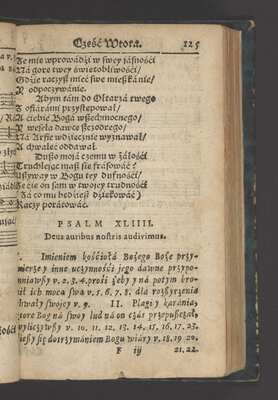 Cżęść Wtora. 125
Że mie wprowádźi w swey iásnośći
Ná gorę twey świętobliwośći/
Gdźie racżysz mieć swe mieszkánie/
Y odpocżywánie.
Abym tám do Ołtarzá twego
Z ofiárámi przystępował/
A ćiebie Bogá wszechmocnego/
Y weselá dawcę szcżodrego/
Ná Arfie wdźięcżnie wyznawał/
A chwalec oddawał.
Duszo moiá cżemu w żáłośći
Truchleiąc masz sie frásowáć?
Używay w Bogu tey dufnośći/
Że ćie on sam w twoiey trudnośći
(Zá co mu będźiesz dźiękowáć)
Racży porátowáć.
PSALM XLIIII.
Deus auribus nostris audivimus.
Imieniem kośćiołá Bożego Boże przy-
mierze y inne ucżynnośći iego dawne przypo-
v. 2. 3. 4. prośi żeby y ná potym
ich moca swa v. 5. 6. 7. 8. dla rozszyrzenia
chwały swoiey v. 9. II. Plagi y karánia
ktore Bog ná swoy lud ná on cżás przepuszcżał,
wylicżywszy v. 10. 11. 12. 13. 14. 15. 16. 17. 23.
się dotrzymániem Bogu wiáry v. 18. 19. 20.
F iij 21. 22.